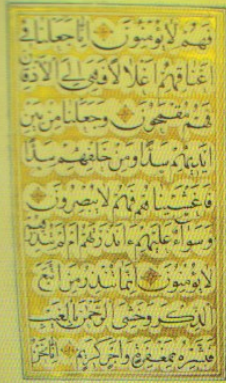 فَهُمْ لَا يُؤْمِنُونَ ۝ إِنَّا جَعَلْنَا فِي
أَعْنَاقِهِمْ أَغْلَالًا فَهِيَ إِلَى الْأَذْقَانِ
فَهُمْ مُقْمَحُونَ ۝ وَجَعَلْنَا مِنْ بَيْنِ
أَيْدِيهِمْ سَدًّا وَمِنْ خَلْفِهِمْ سَدًّا
فَأَغْشَيْنَاهُمْ فَهُمْ لَا يُبْصِرُونَ ۝
وَسَوَاءٌ عَلَيْهِمْ ءَأَنْذَرْتَهُمْ أَمْ لَمْ تُنْذِرْهُمْ
لَا يُؤْمِنُونَ ۝ إِنَّمَا تُنْذِرُ مَنِ اتَّبَعَ
الذِّكْرَ وَخَشِيَ الرَّحْمٰنَ بِالْغَيْبِ
فَبَشِّرْهُ بِمَغْفِرَةٍ وَأَجْرٍ كَرِيمٍ ۝ إِنَّا نَحْنُ